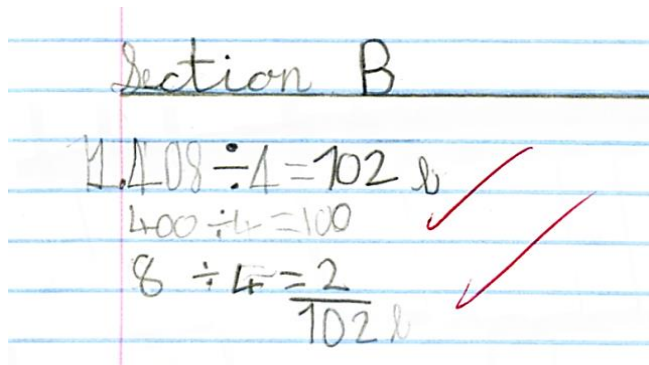 Section B
1. 408 ÷ 4 = 102 l
400 ÷ 4 = 100
8 ÷ 4 = 2
102 l